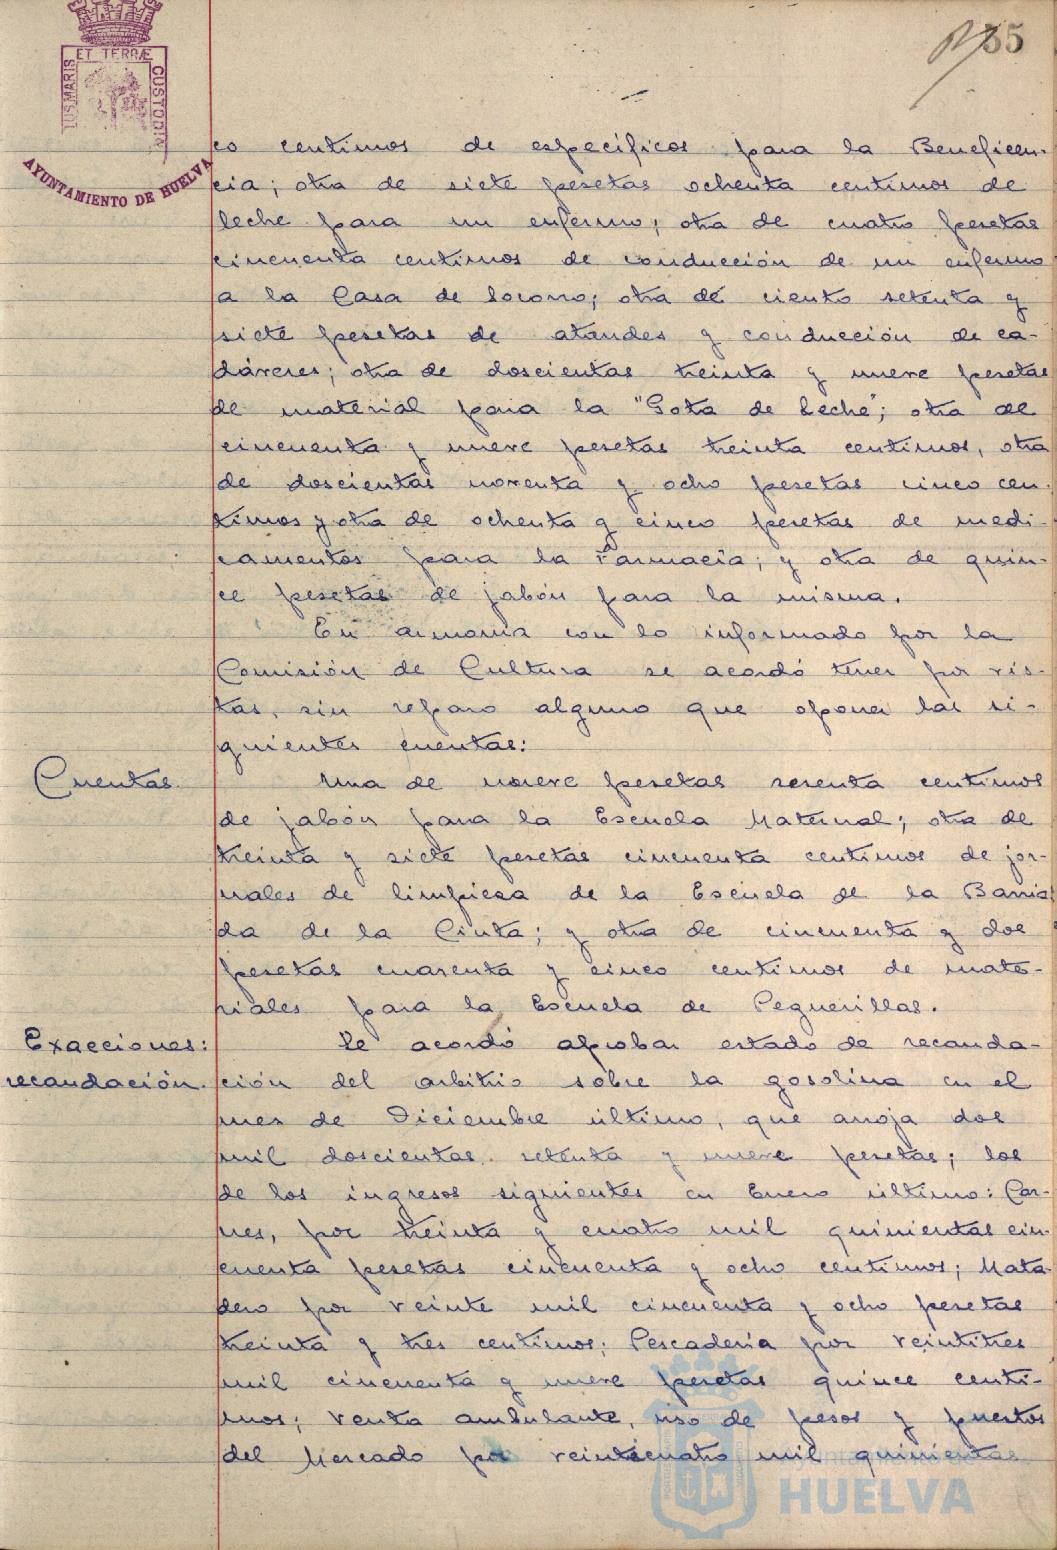 35
ET TERRÆ
US MARIS
CUSTODI
AYUNTAMIENTO DE HUELVA
co centimos de específicos para la Beneficen-
cia; otra de siete pesetas ochenta centimos de
leche para un enfermo; otra de cuatro pesetas
cincuenta centimos de conducción de un enfermo
a la Casa de Socorro; otra de ciento setenta y
siete pesetas de ataudes y conducción de ca-
dáveres; otra de doscientas treinta y nueve pesetas
de material para la "Gota de Leche"; otra de
cincuenta y nueve pesetas treinta centimos, otra
de doscientas noventa y ocho pesetas cinco cen-
timos y otra de ochenta y cinco pesetas de medi-
camentos para la Farmacia; y otra de quin-
ce pesetas de jabón para la misma.
En armonia con lo informado por la
Comisión de Cultura se acordó tener por vis-
tas, sin reparo alguno que oponer las si-
guientes cuentas:
Cuentas.
Una de nueve pesetas sesenta centimos
de jabón para la Escuela Maternal; otra de
treinta y siete pesetas cincuenta centimos de jor-
nales de limpieza de la Escuela de la Barria
da de la Cinta; y otra de cincuenta y dos
pesetas cuarenta y cinco centimos de mate-
riales para la Escuela de Pequerillas.
Exacciones:
recaudación.
Se acordó aprobar estado de recauda-
ción del arbitrio sobre la gasolina en el
mes de Diciembre último, que arroja dos
mil doscientas setenta y nueve pesetas; los
de los ingresos siguientes en Enero último: Car-
nes, por treinta y cuatro mil quinientas cin-
cuenta pesetas cincuenta y ocho centimos; Mata-
dero por veinte mil cincuenta y ocho pesetas
treinta y tres centimos; Pescaderia por veintitres
mil cincuenta y nueve pesetas quince centi-
mos; venta ambulante, uso de pesos y puestos
del Mercado por veinticuatro mil quinientas
HUELVA